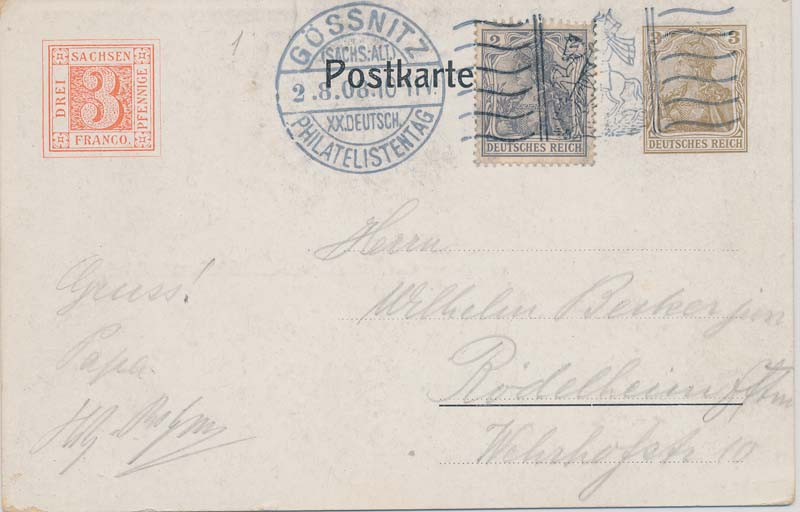 SACHSEN
DREI
3
PFENNIGE
FRANCO.
1
GÖSSNITZ
(SACHS:ALT)
2.8.08.10
XX.DEUTSCH.
PHILATELISTENTAG
Postkarte
2
DEUTSCHES REICH
3 3
DEUTSCHES REICH
Herrn
Wilhelm Becker jun
Rödelheim
Wehrhofstr 10
Gruss!
Papa